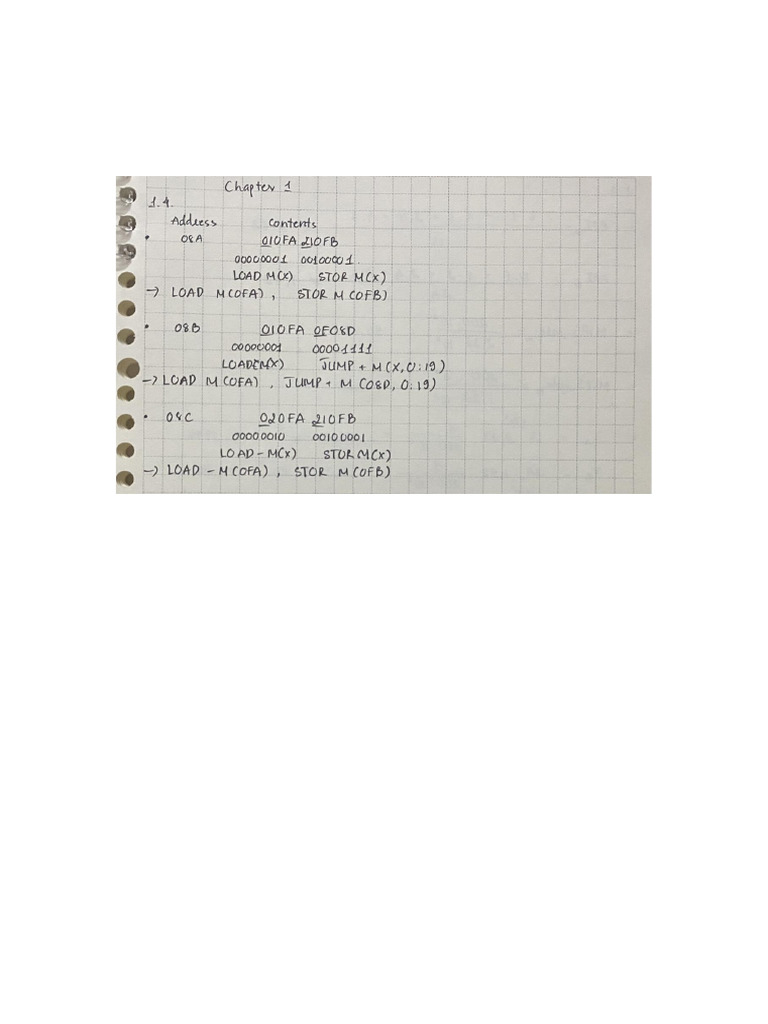 Chapter 1
1.4.
Address Contents
• 08A 010FA 210FB
00000001 00100001.
LOAD M(X) STOR M(X)
→ LOAD M(0FA), STOR M(0FB)
• 08B 010FA 0F08D
00000001 00001111
LOAD M(X) JUMP + M(X,0:19)
→ LOAD M(0FA), JUMP + M(08D,0:19)
• 08C 020FA 210FB
00000010 00100001
LOAD - M(X) STOR M(X)
→ LOAD - M(0FA), STOR M(0FB)